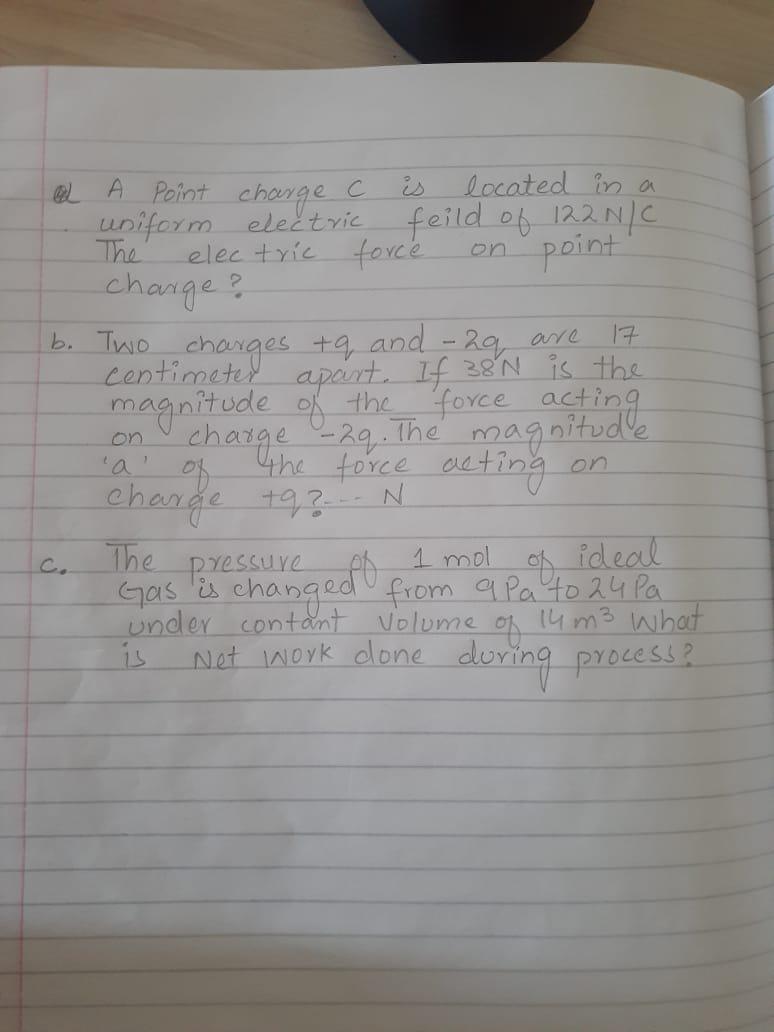 a A Point charge C is located in a
uniform electric feild of 122 N/C
The electric force on point
charge?
b. Two charges +q and -2q are 17
centimeter apart. If 38N is the
magnitude of the force acting
on charge -2q. The magnitude
'a' of the force acting on
charge +q?--- N
c. The pressure of 1 mol of ideal
Gas is changed from 9 Pa to 24 Pa
under contant volume of 14 m³ What
is Net Work done during process?